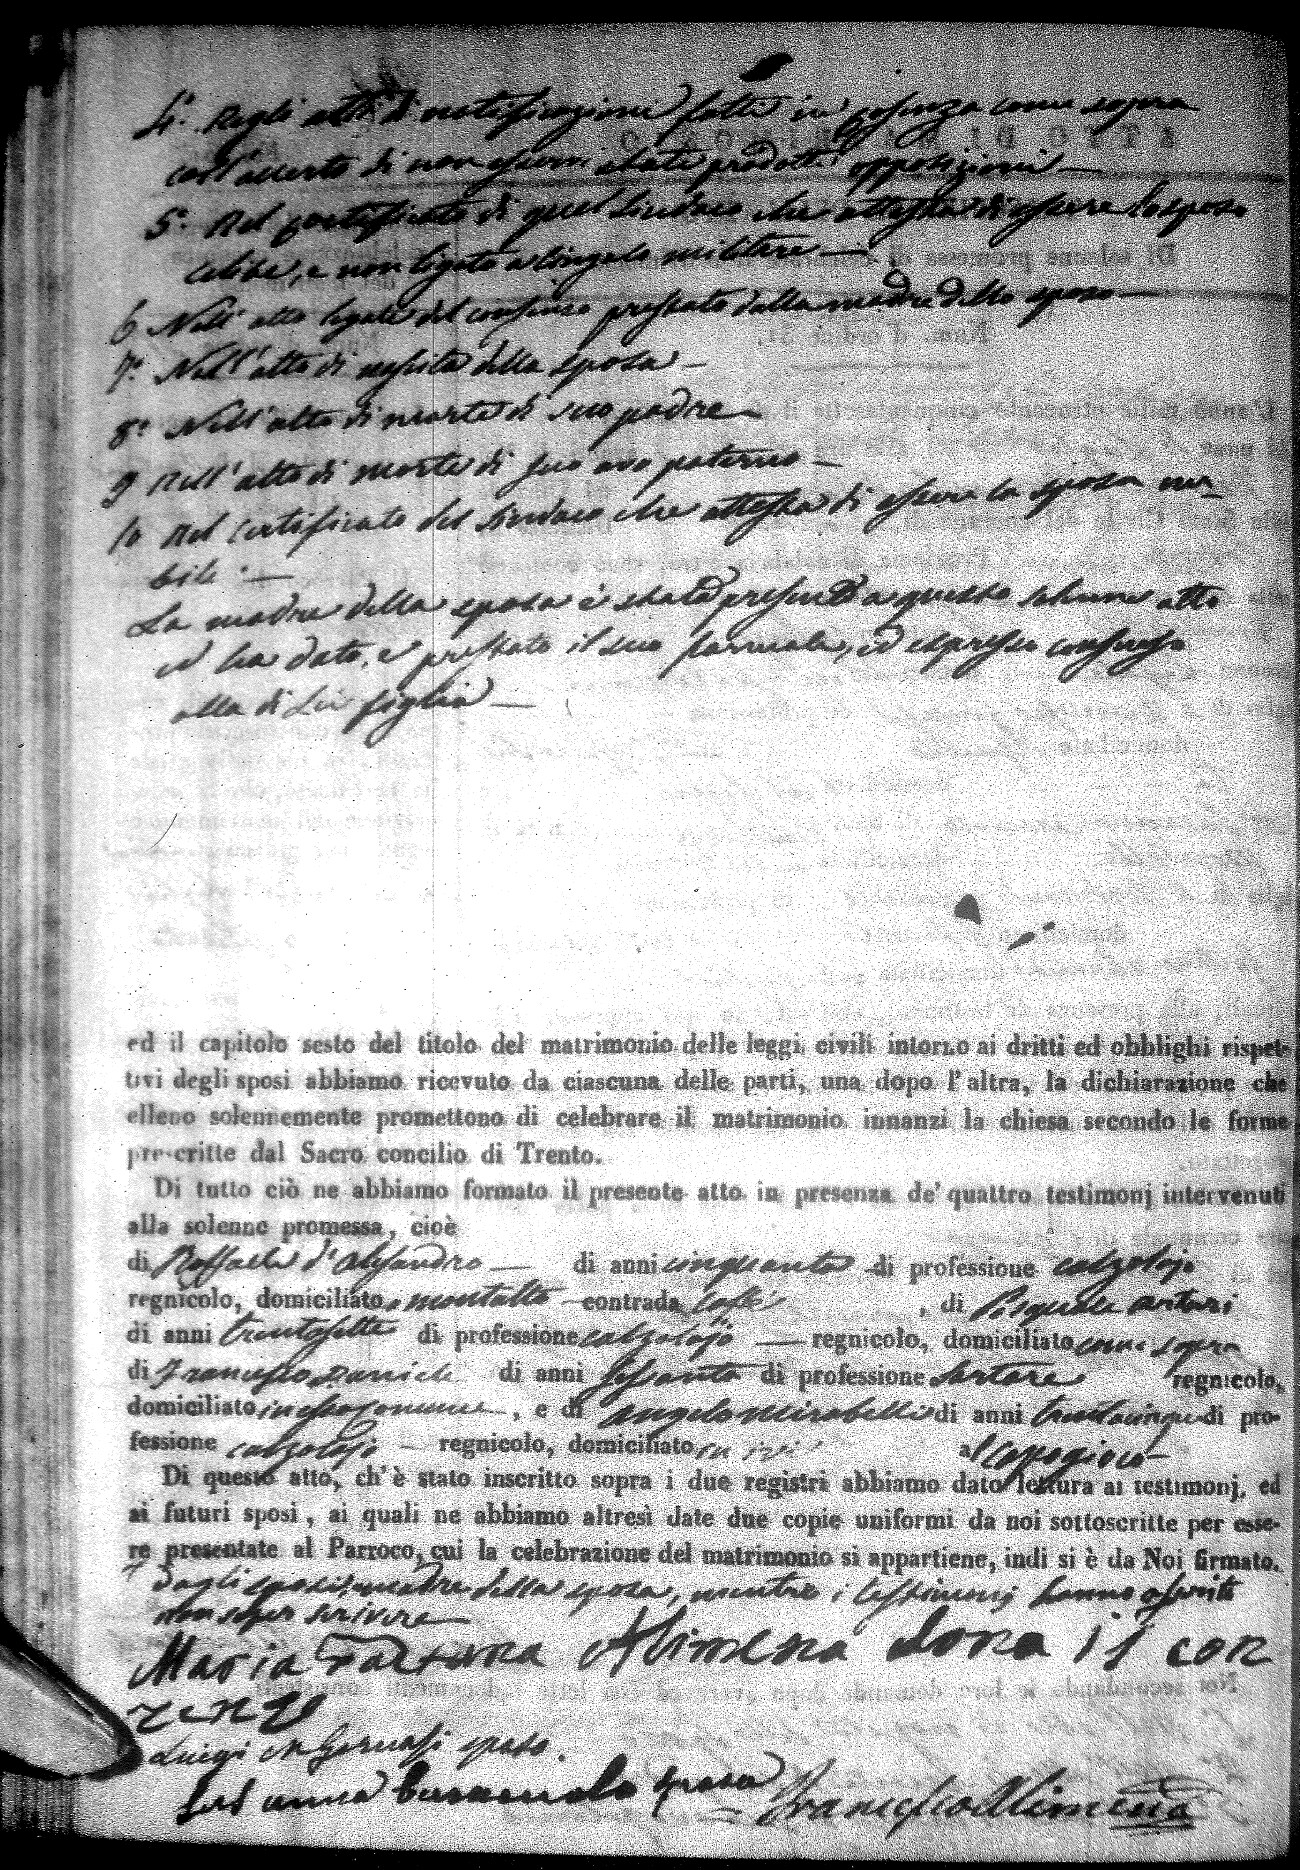 4.º Negli atti di notificazione fatti in Cosenza come sopra
coll'accerto di non essersi state prodotte opposizioni —
5.º Nel certificato di quel Sindaco che attesta di essere lo sposo
celibe, e non ligato a vincolo militare —
6 Nell'atto legale del consenso prestato dalla madre dello sposo —
7.º Nell'atto di nascita della sposa —
8.º Nell'atto di morte di suo padre —
9 Nell'atto di morte di suo avo paterno —
10 Nel certificato del Sindaco che attesta di essere la sposa nu-
bile. —
La madre della sposa è stata presente a questo solenne atto
ed ha dato, e prestato il suo formale, ed espresso consenso
alla di Lei figlia —
ed il capitolo sesto del titolo del matrimonio delle leggi civili intorno ai dritti ed obblighi rispet-
tivi degli sposi abbiamo ricevuto da ciascuna delle parti, una dopo l'altra, la dichiarazione che
elleno solennemente promettono di celebrare il matrimonio innanzi la chiesa secondo le forme
prescritte dal Sacro concilio di Trento.
Di tutto ciò ne abbiamo formato il presente atto in presenza de' quattro testimonj intervenuti
alla solenne promessa, cioè
di Raffaele d'Alessandro — di anni cinquanta di professione calzolajo
regnicolo, domiciliato montalto contrada , di Pasquale Arturi
di anni trentasette di professione calzolajo — regnicolo, domiciliato come sopra
di Francesco Daniele di anni sessanta di professione Sartore regnicolo,
domiciliato in essa comune, e di Angelo Mirabelli di anni trentacinque di pro-
fessione calzolajo — regnicolo, domiciliato
Di questo atto, ch'è stato inscritto sopra i due registri abbiamo dato lettura ai testimonj, ed
ai futuri sposi, ai quali ne abbiamo altresì date due copie uniformi da noi sottoscritte per esse-
re presentate al Parroco, cui la celebrazione del matrimonio si appartiene, indi si è da Noi firmato,
+ dagli sposi, madre della sposa, mentre i testimonj hanno asserito
non saper scrivere —
Maria Alimena dona il con
zenzo
Luigi M Gervasi sposo.
sposa Francesco Alimena